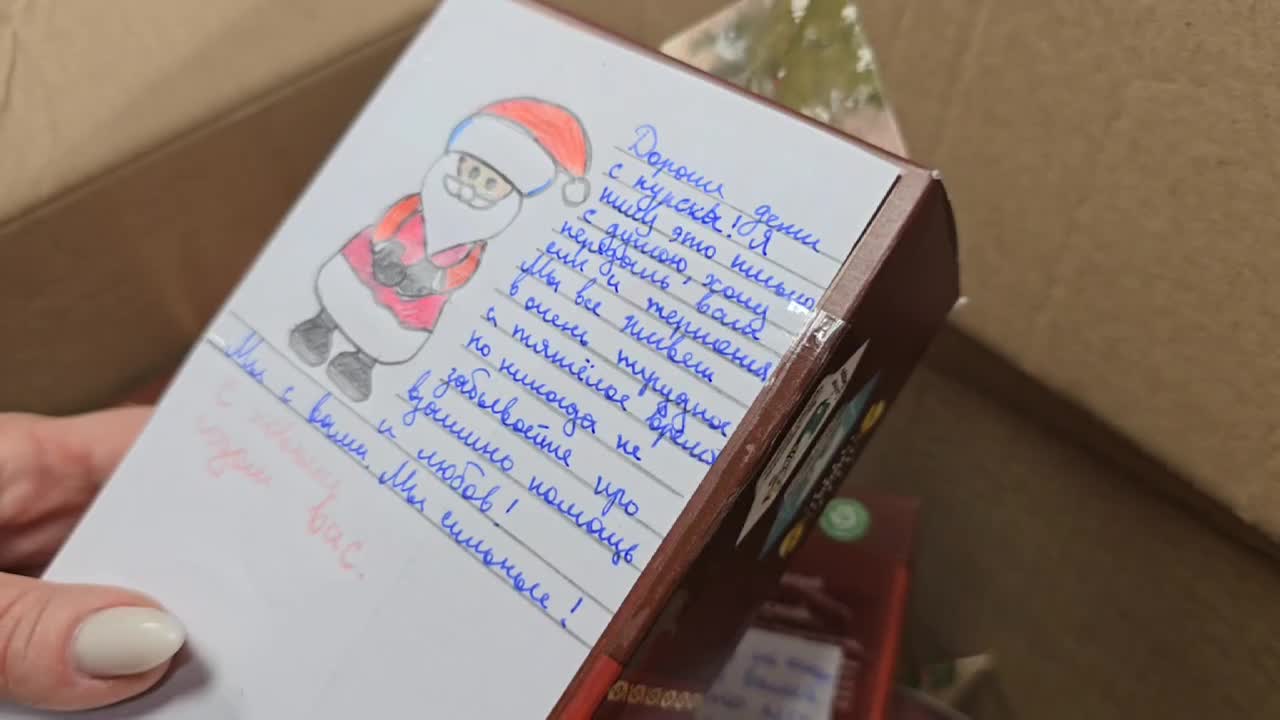 Дорогие дети
с курска! Я
пишу это письмо
с душою, хочу
передать вам
сил и терпения
Мы все живем
в очень трудное
и тяжёлое время
но никогда не
забывайте про
взаимно помощь
и любовь!
Мы с вами. Мы сильные!